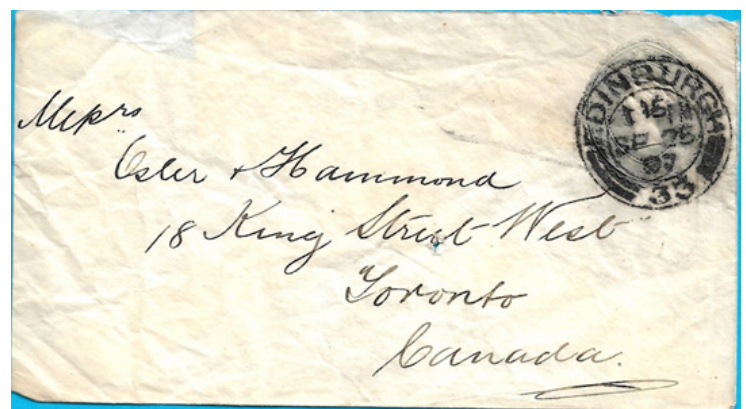 Messrs
Osler & Hammond
18 King Street West
Toronto
Canada.
EDINBURGH
SP 25
97
33